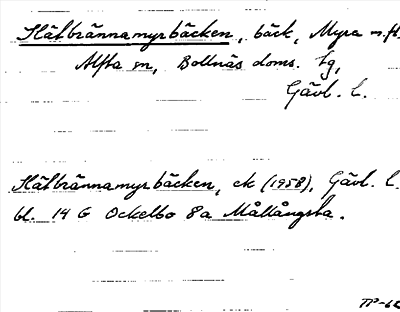 Slåtbrännamyrbäcken, bäck, Myra m.fl.
Alfta sn, Bollnäs doms. tg,
Gävl. l.
Slåtbrännamyrbäcken, ek (1958), Gävl. l.
bl. 14 G Ockelbo 8a Mållångsta.